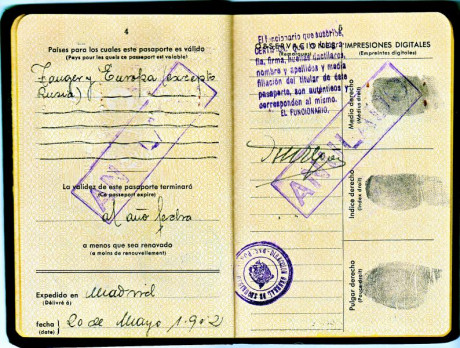 4
Países para los cuales este pasaporte es válido
(Pays pour les quels ce passeport est valable)
Tanger y Europa (excepto
Rusia)
La validez de este pasaporte terminará
(Ce passeport expire)
al año fecha
a menos que sea renovado
(a moins de renouvellement)
Expedida en Madrid
(Délivré à)
fecha 20 de Mayo 1.9
(date)
OBSERVACIONES IMPRESIONES DIGITALES
(Empreintes digitales)
El funcionario que suscribe,
CERTIFICA:
fía, firma, huellas dactilares,
nombre y apellidos y media
filiación del titular de este
pasaporte, son auténticos y
corresponden al mismo.
EL FUNCIONARIO.
ANULADO
Medio derecho
(Medio droit)
Indice derecho
(Index droit)
Pulgar derecho
(Pouce droit)